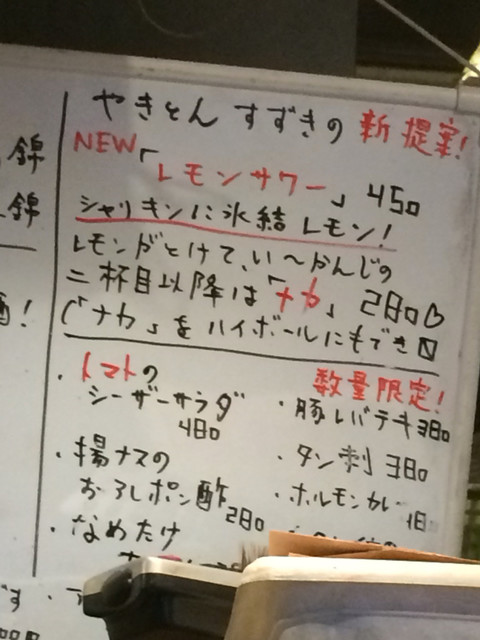 やきとん すずきの 新提案!
NEW「レモンサワー」450
シャリキンに氷結レモン!
レモンがとけて、い〜かんじの
二杯目以降は「ナカ」280
(「ナカ」をハイボールにもでき
・トマトの
シーザーサラダ
480
・揚ナスの
おろしポン酢
280
・なめたけ
数量限定!
・豚レバテキ380
・タン刺 380
・ホルモンカレー
錦
錦
！